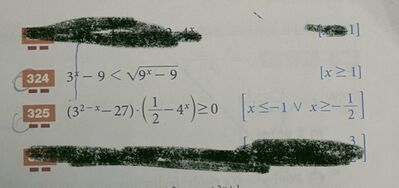 1]
324 3^x − 9 < √(9^x − 9) [x ≥ 1]
325 (3^(2−x) − 27) · (1/2 − 4^x) ≥ 0 [x ≤ −1 ∨ x ≥ −1/2]
3